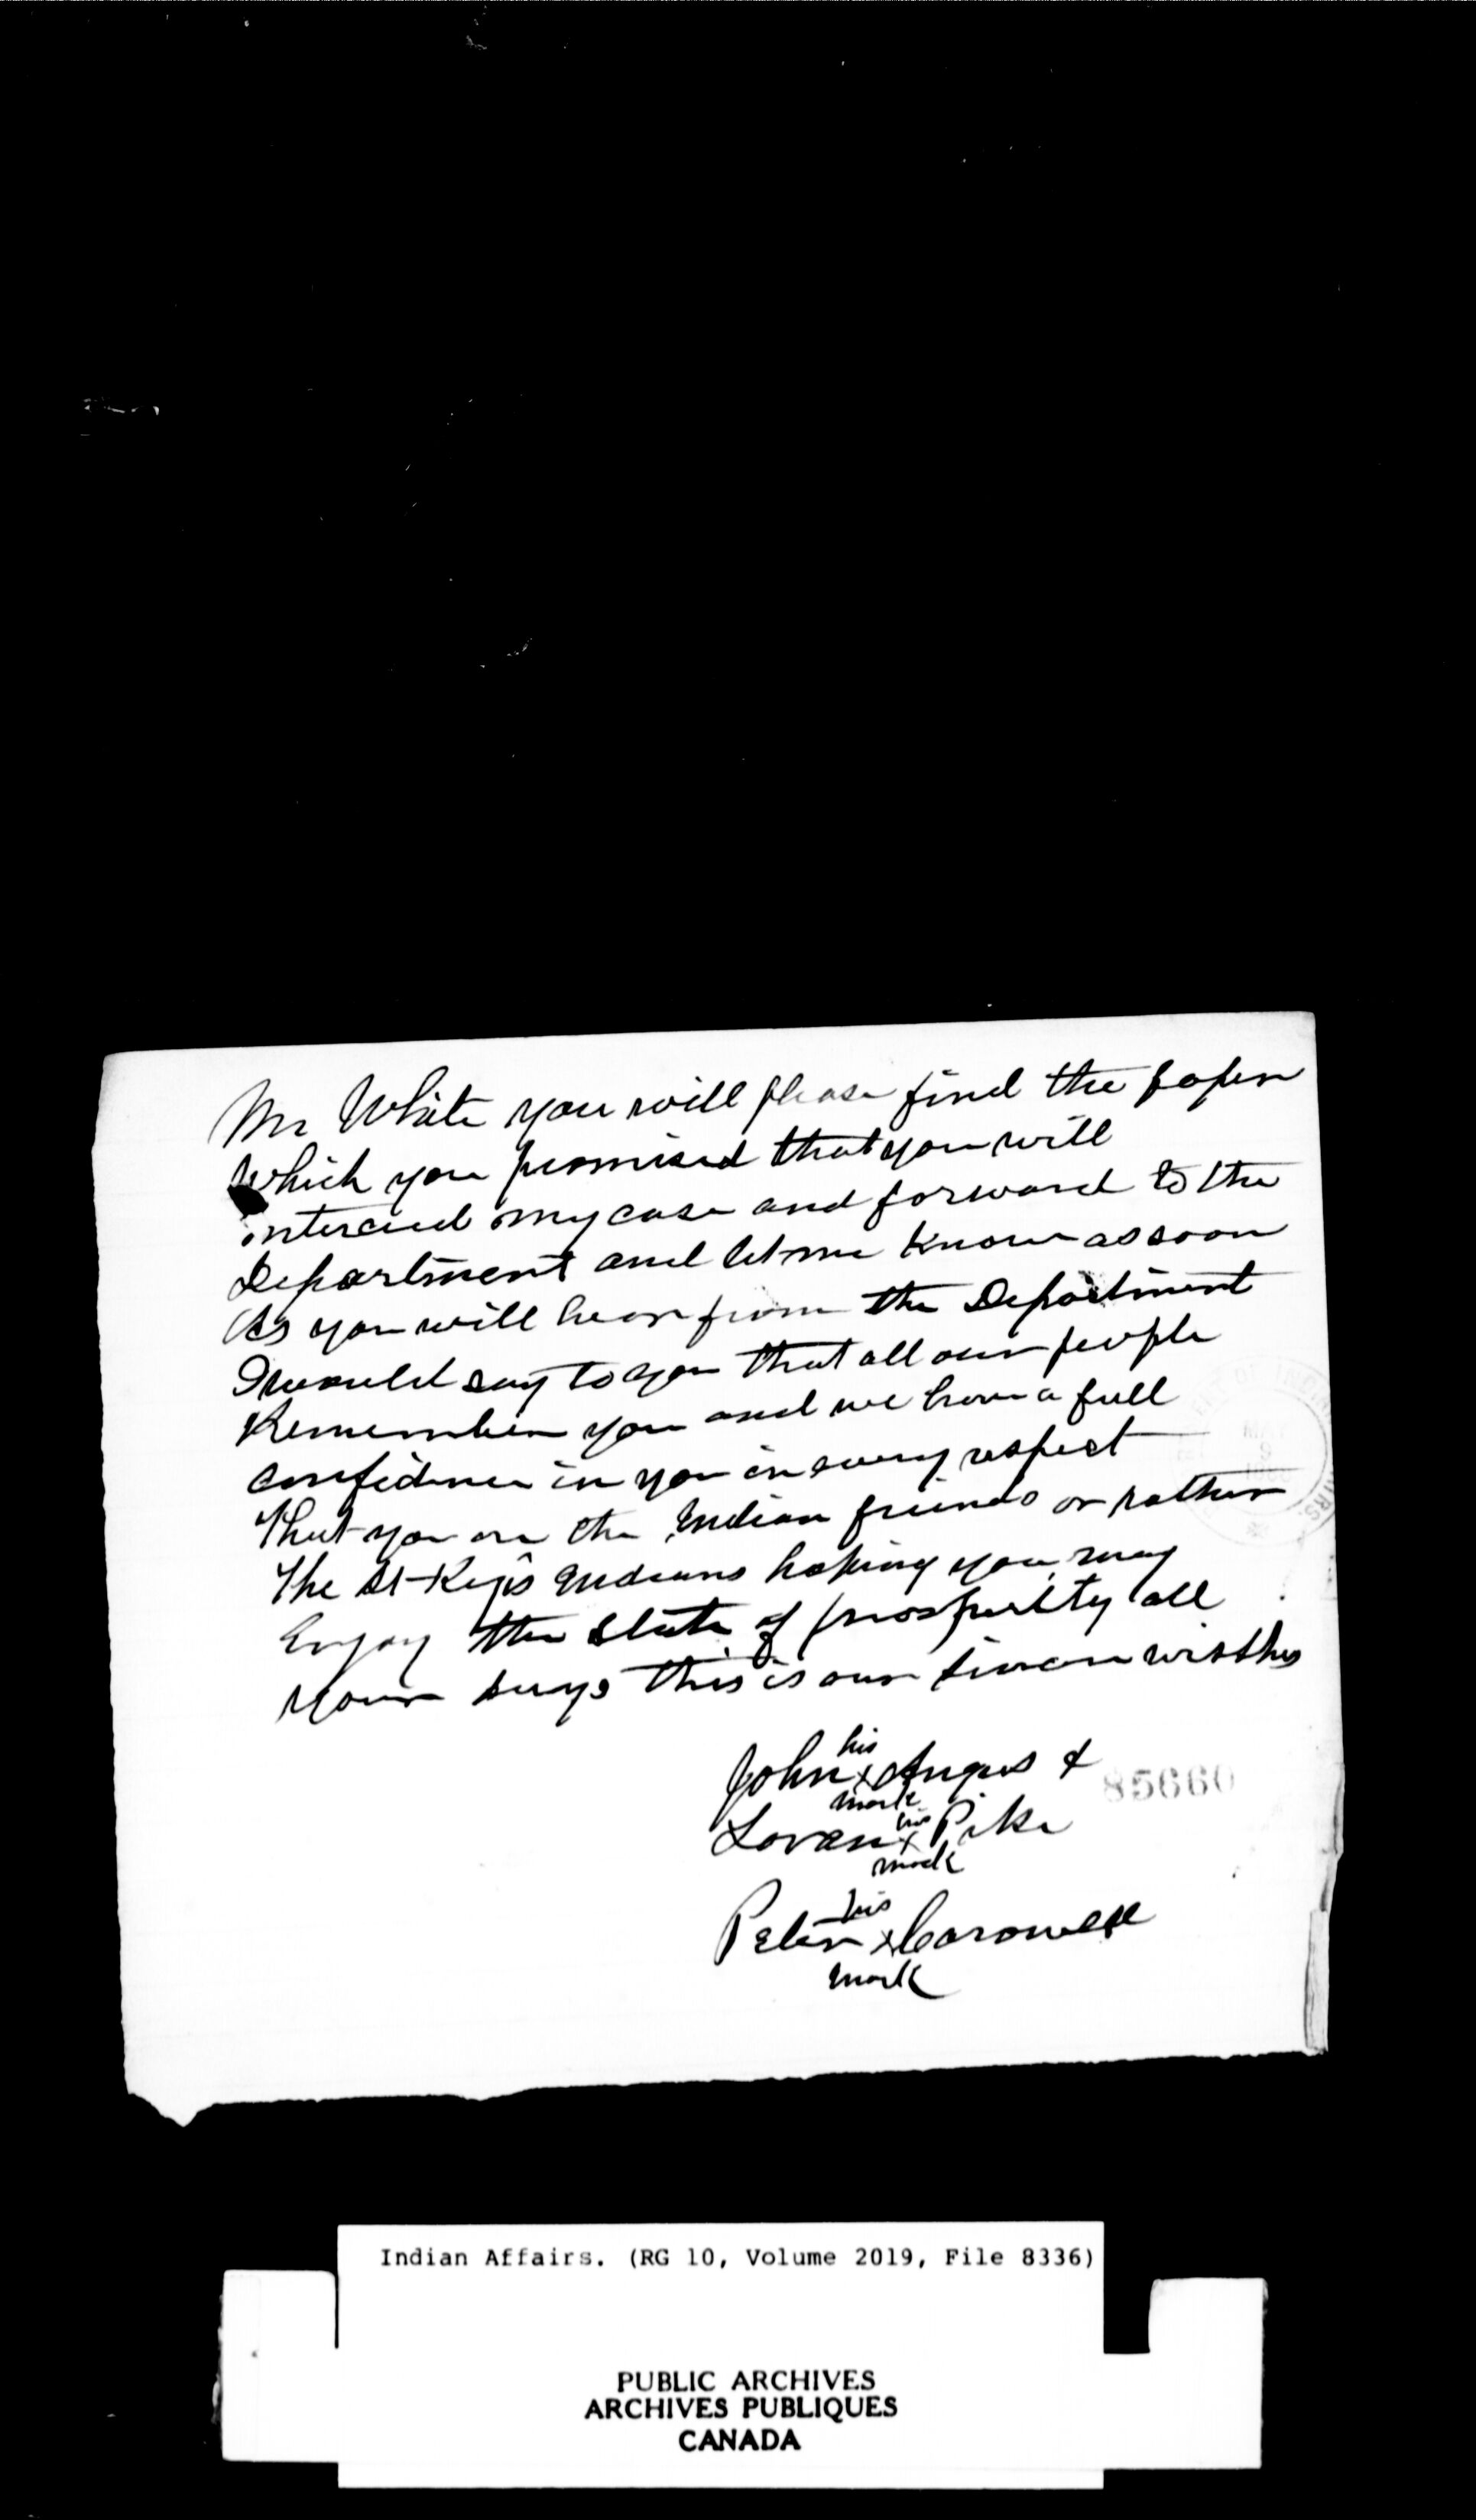 Mr White you will please find the paper
Which you promised that you will
interceed my case and forward to the
Department and let me know as soon
As you will hear from the Department
I would say to you that all our people
Remember you and we have a full
confidence in you in every respect
That you are the Indian friends or rather
The St-Regis Indians hoping you may
Enjoy the state of prosperity all
your days this is our sincere wisthes
his
John x Angus &
mark
his
Loran x Pike
mark
his
Peter x Carowell
mark
85660
MAY
9
Indian Affairs. (RG 10, Volume 2019, File 8336)
PUBLIC ARCHIVES
ARCHIVES PUBLIQUES
CANADA